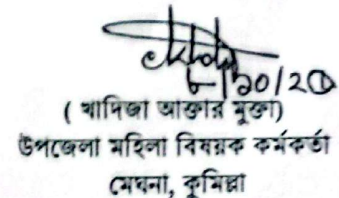 ( খাদিজা আক্তার মুক্তা)
উপজেলা মহিলা বিষয়ক কর্মকর্তা
মেঘনা, কুমিল্লা